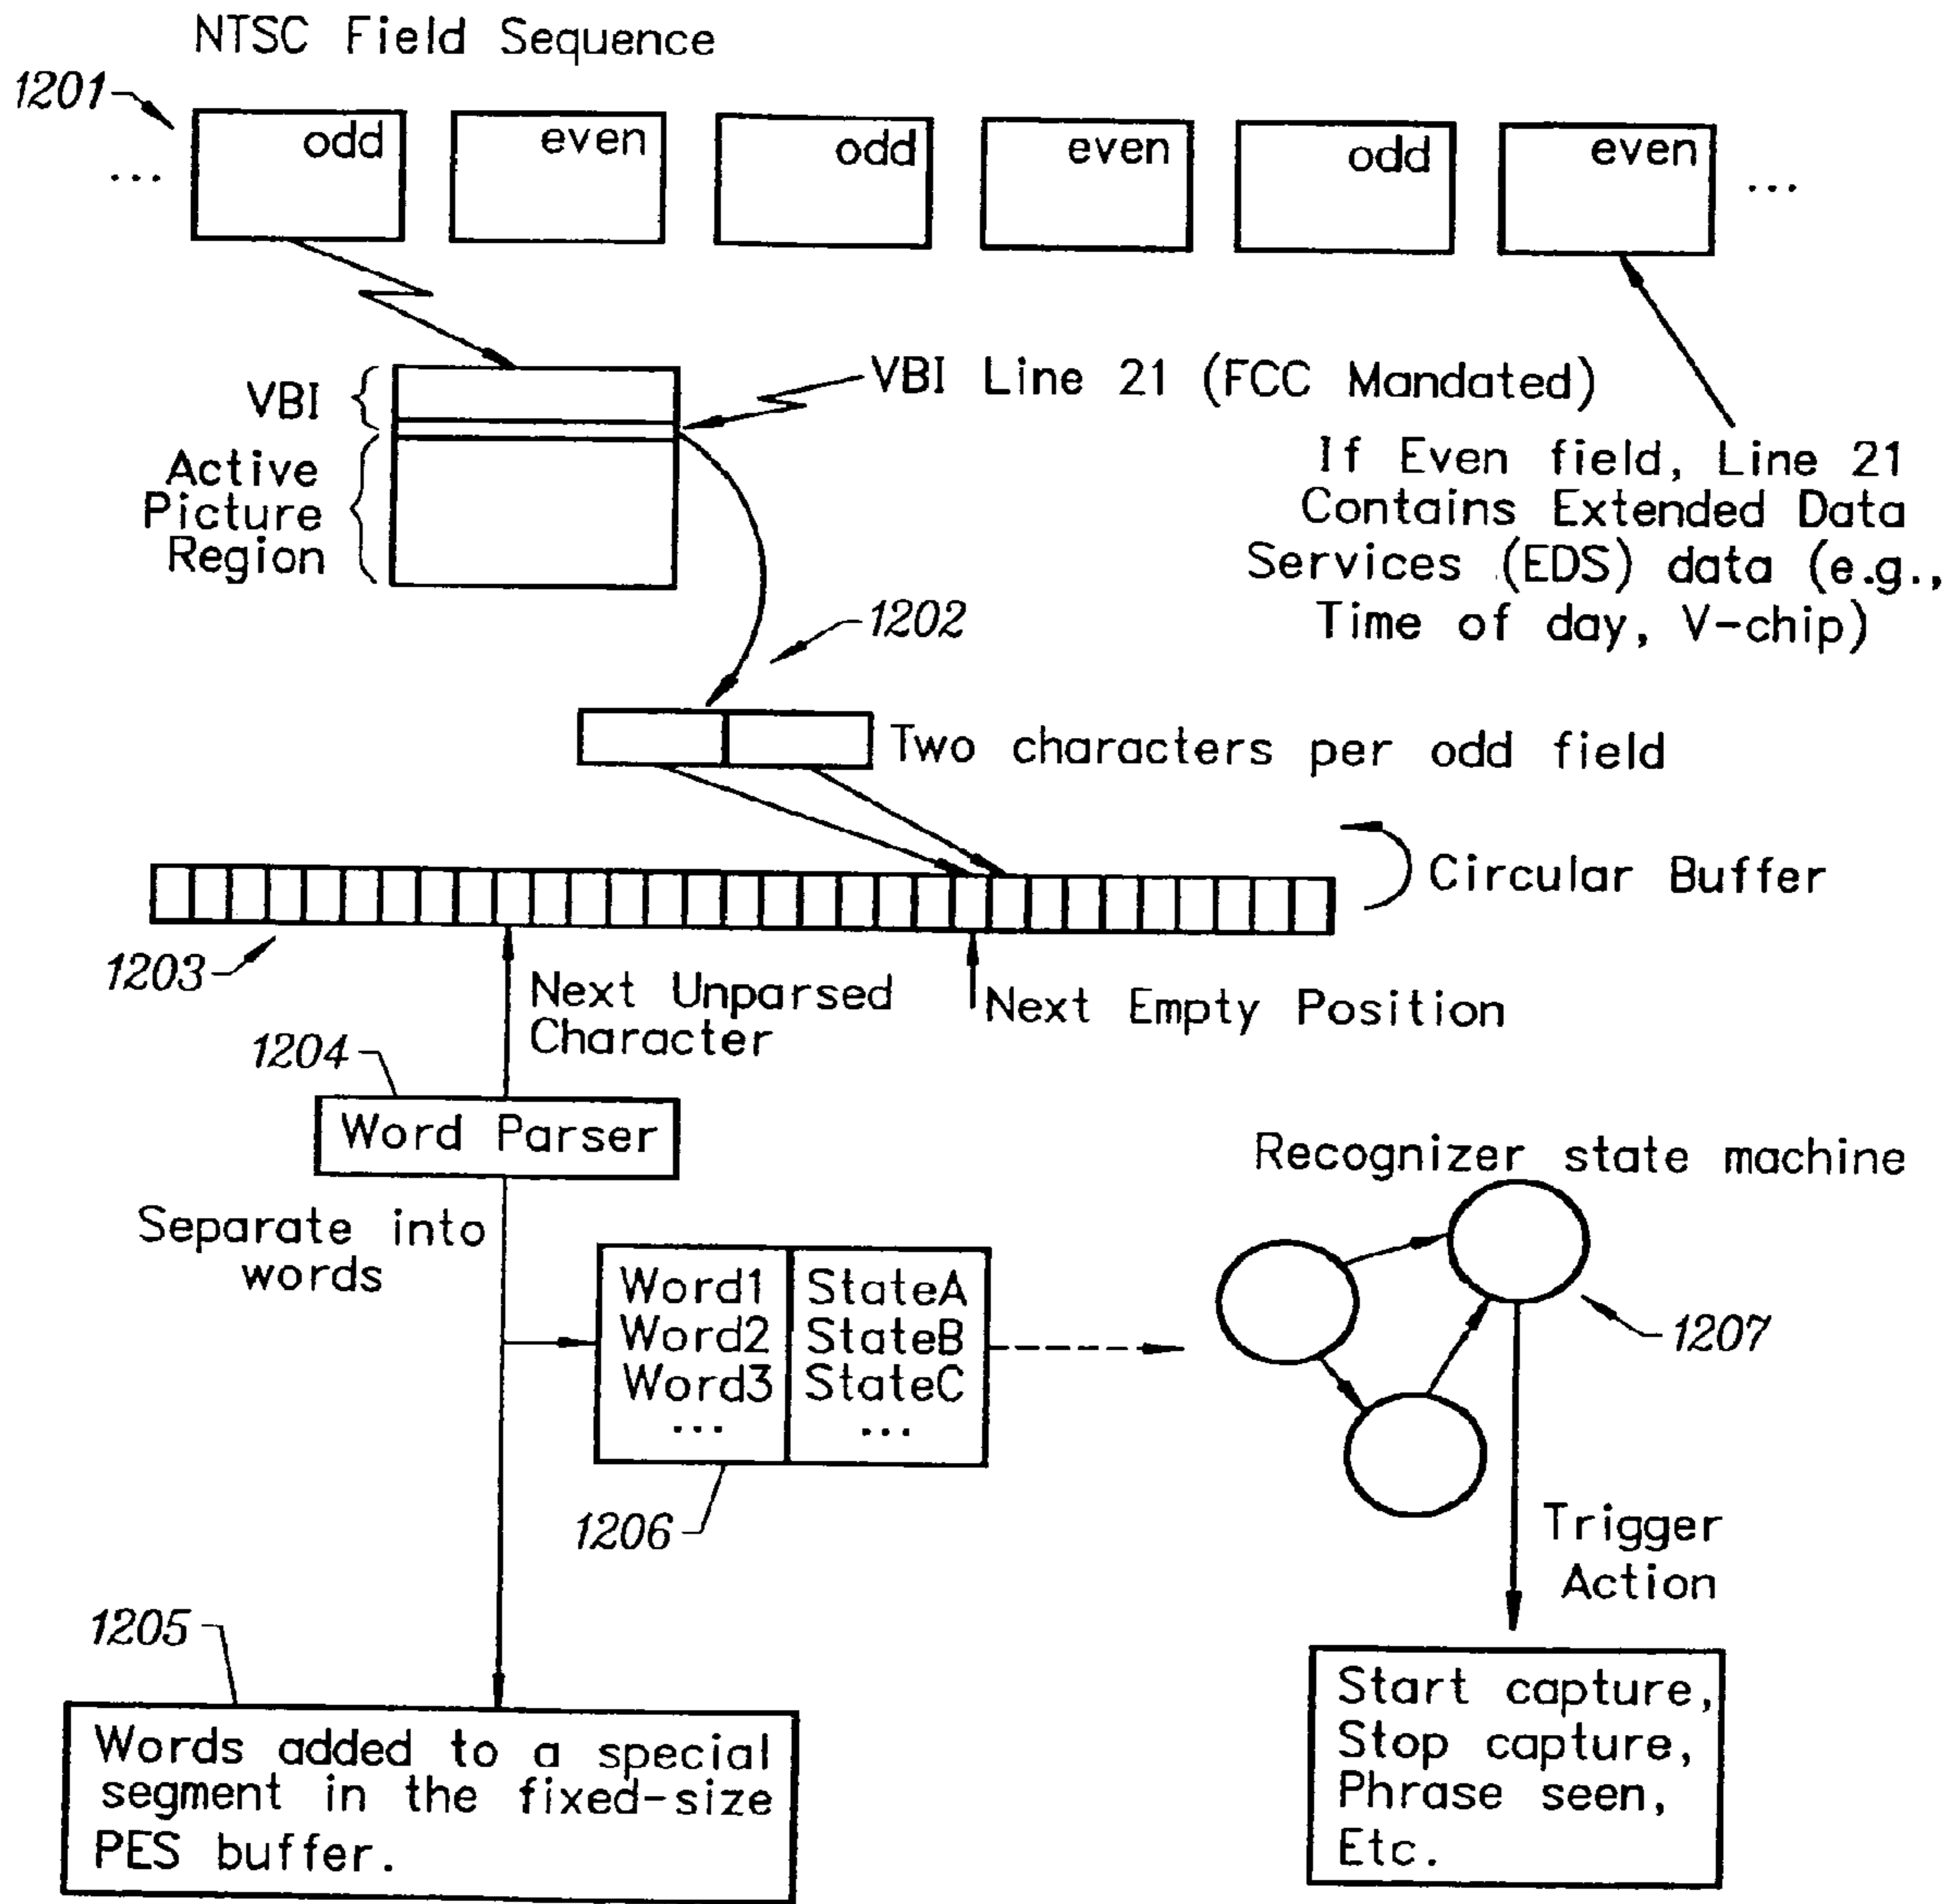 NTSC Field Sequence
1201
odd
even
odd
even
odd
even
...
...
VBI
VBI Line 21 (FCC Mandated)
Active
Picture
Region
If Even field, Line 21
Contains Extended Data
Services (EDS) data (e.g.,
Time of day, V-chip)
1202
Two characters per odd field
Circular Buffer
1203
Next Unparsed
Character
Next Empty Position
1204
Word Parser
Separate into
words
Word1 StateA
Word2 StateB
Word3 StateC
... ...
1206
Recognizer state machine
1207
Trigger
Action
1205
Words added to a special
segment in the fixed-size
PES buffer.
Start capture,
Stop capture,
Phrase seen,
Etc.